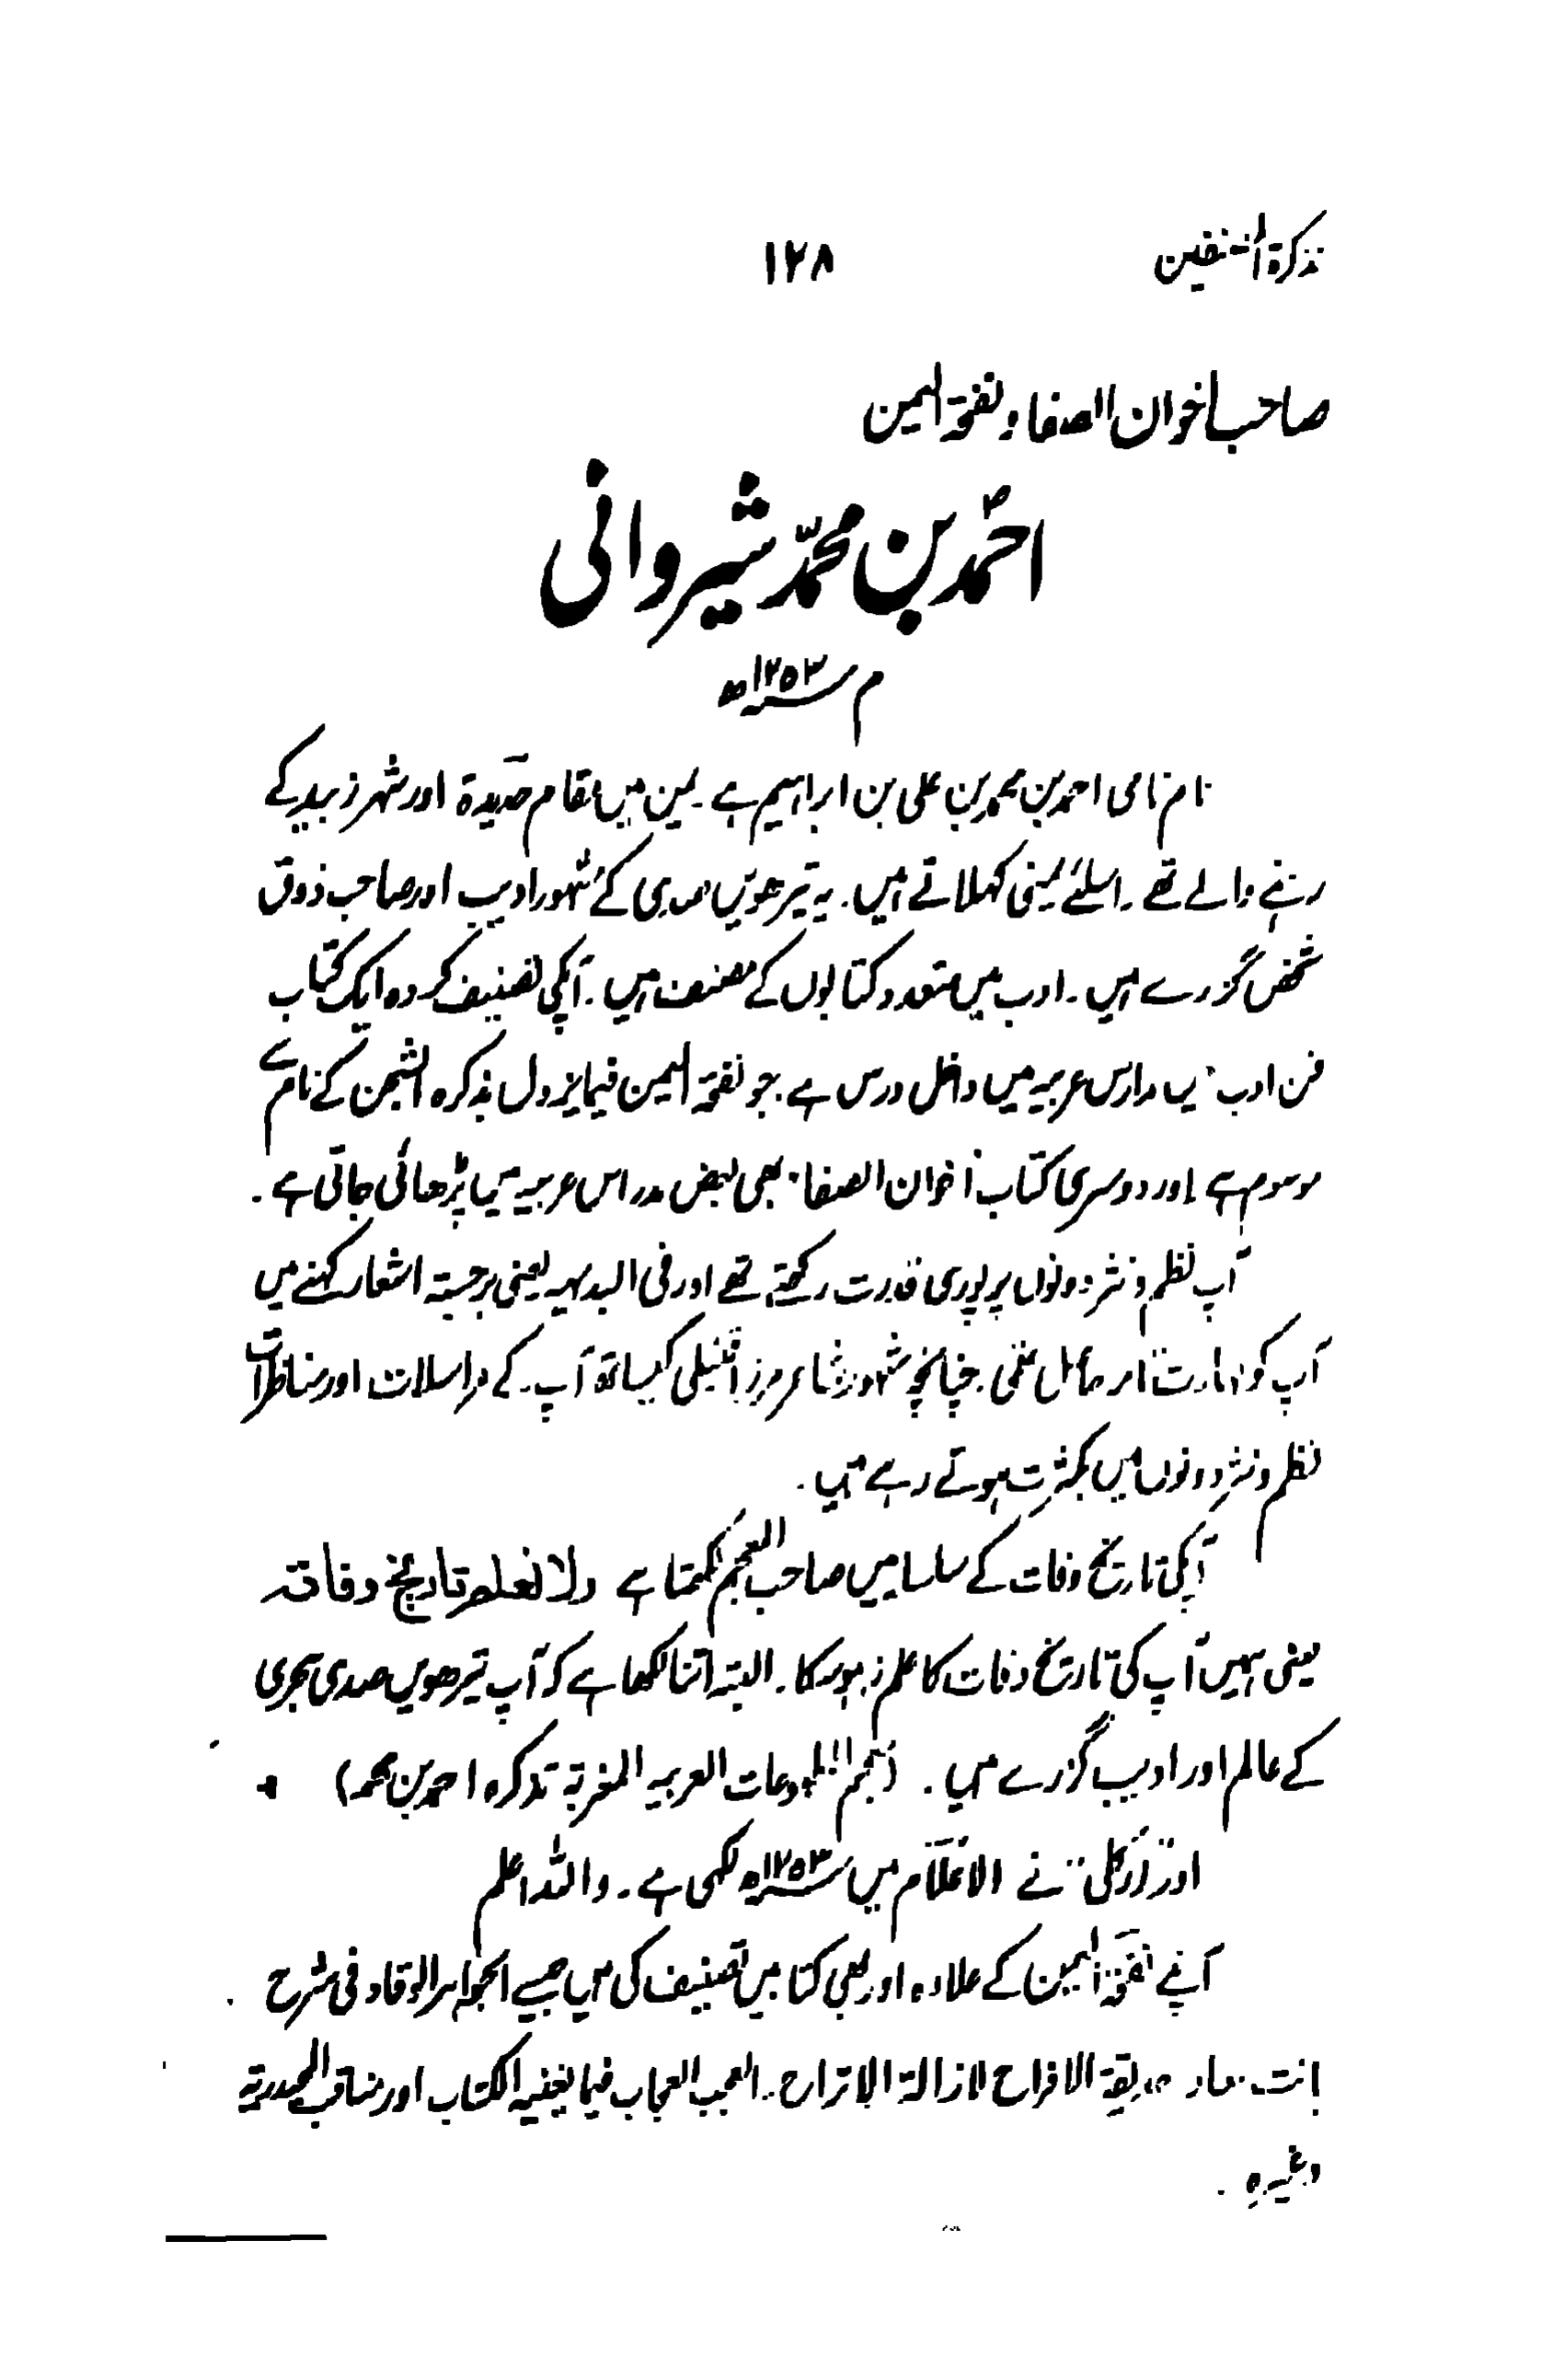 تذکرۃ المصنفین
۱۲۸
صاحب اخوان الصفا و نفحۃ الیمن
احمد بن محمّد شیروانی
م ۱۲۵۳ھ
نام نامی احمد بن محمد بن علی بن ابراہیم ہے ۔ یمن میں مقام حدیدۃ اور شہر زبید کے
رہنے والے تھے ۔ اسلئے یمنی کہلاتے ہیں ۔ یہ تیرھویں صدی کے مشہور ادیب اور صاحب ذوق
شخص گزرے ہیں ۔ ادب میں متعدد کتابوں کے مصنف ہیں ۔ آپکی تصنیف کردہ ایک کتاب
فن ادب میں مدارس عربیہ میں داخل درس ہے جو نفحۃ الیمن فیما یزول بذکرہ الشجن کے نام سے
موسوم ہے اور دوسری کتاب اخوان الصفا بھی بعض مدارس عربیہ میں پڑھائی جاتی ہے ۔
آپ نظم و نثر دونوں پر پوری قدرت رکھتے تھے اور فی البدیہہ یعنی برجستہ اشعار کہنے میں
آپ کو مہارت تامہ حاصل تھی ۔ چنانچہ مشہور شاعر مرزا قتیلی کیساتھ آپ کے مراسلات اور مناظرات
نظم و نثر دونوں میں بکثرت ہوتے رہے ہیں ۔
آپکی تاریخ وفات کے سلسلہ میں صاحب المعجم لکھتا ہے ولا نعلم تاریخ وفاتہ
یعنی ہمیں آپ کی تاریخ وفات کا علم نہ ہو سکا ۔ البتہ اتنا لکھا ہے کہ آپ تیرھویں صدی ہجری
کے عالم اور ادیب گزرے ہیں ۔ (معجم المطبوعات العربیہ المغربۃ تذکرہ احمد بن محمد)
اور "زرکلی" نے الاعلام میں ۱۲۵۳ھ لکھی ہے ۔ واللہ اعلم
آپنے نفحۃ الیمن کے علاوہ اور بھی کتابیں تصنیف کی ہیں جیسے الجواہر الوقاد فی شرح
بانت سعاد حدیقۃ الافراح لازالۃ الاتراح ۔ العجب العجاب فیما یفید الکتاب اور مناقب الحیدریۃ
وغیرہ ۔